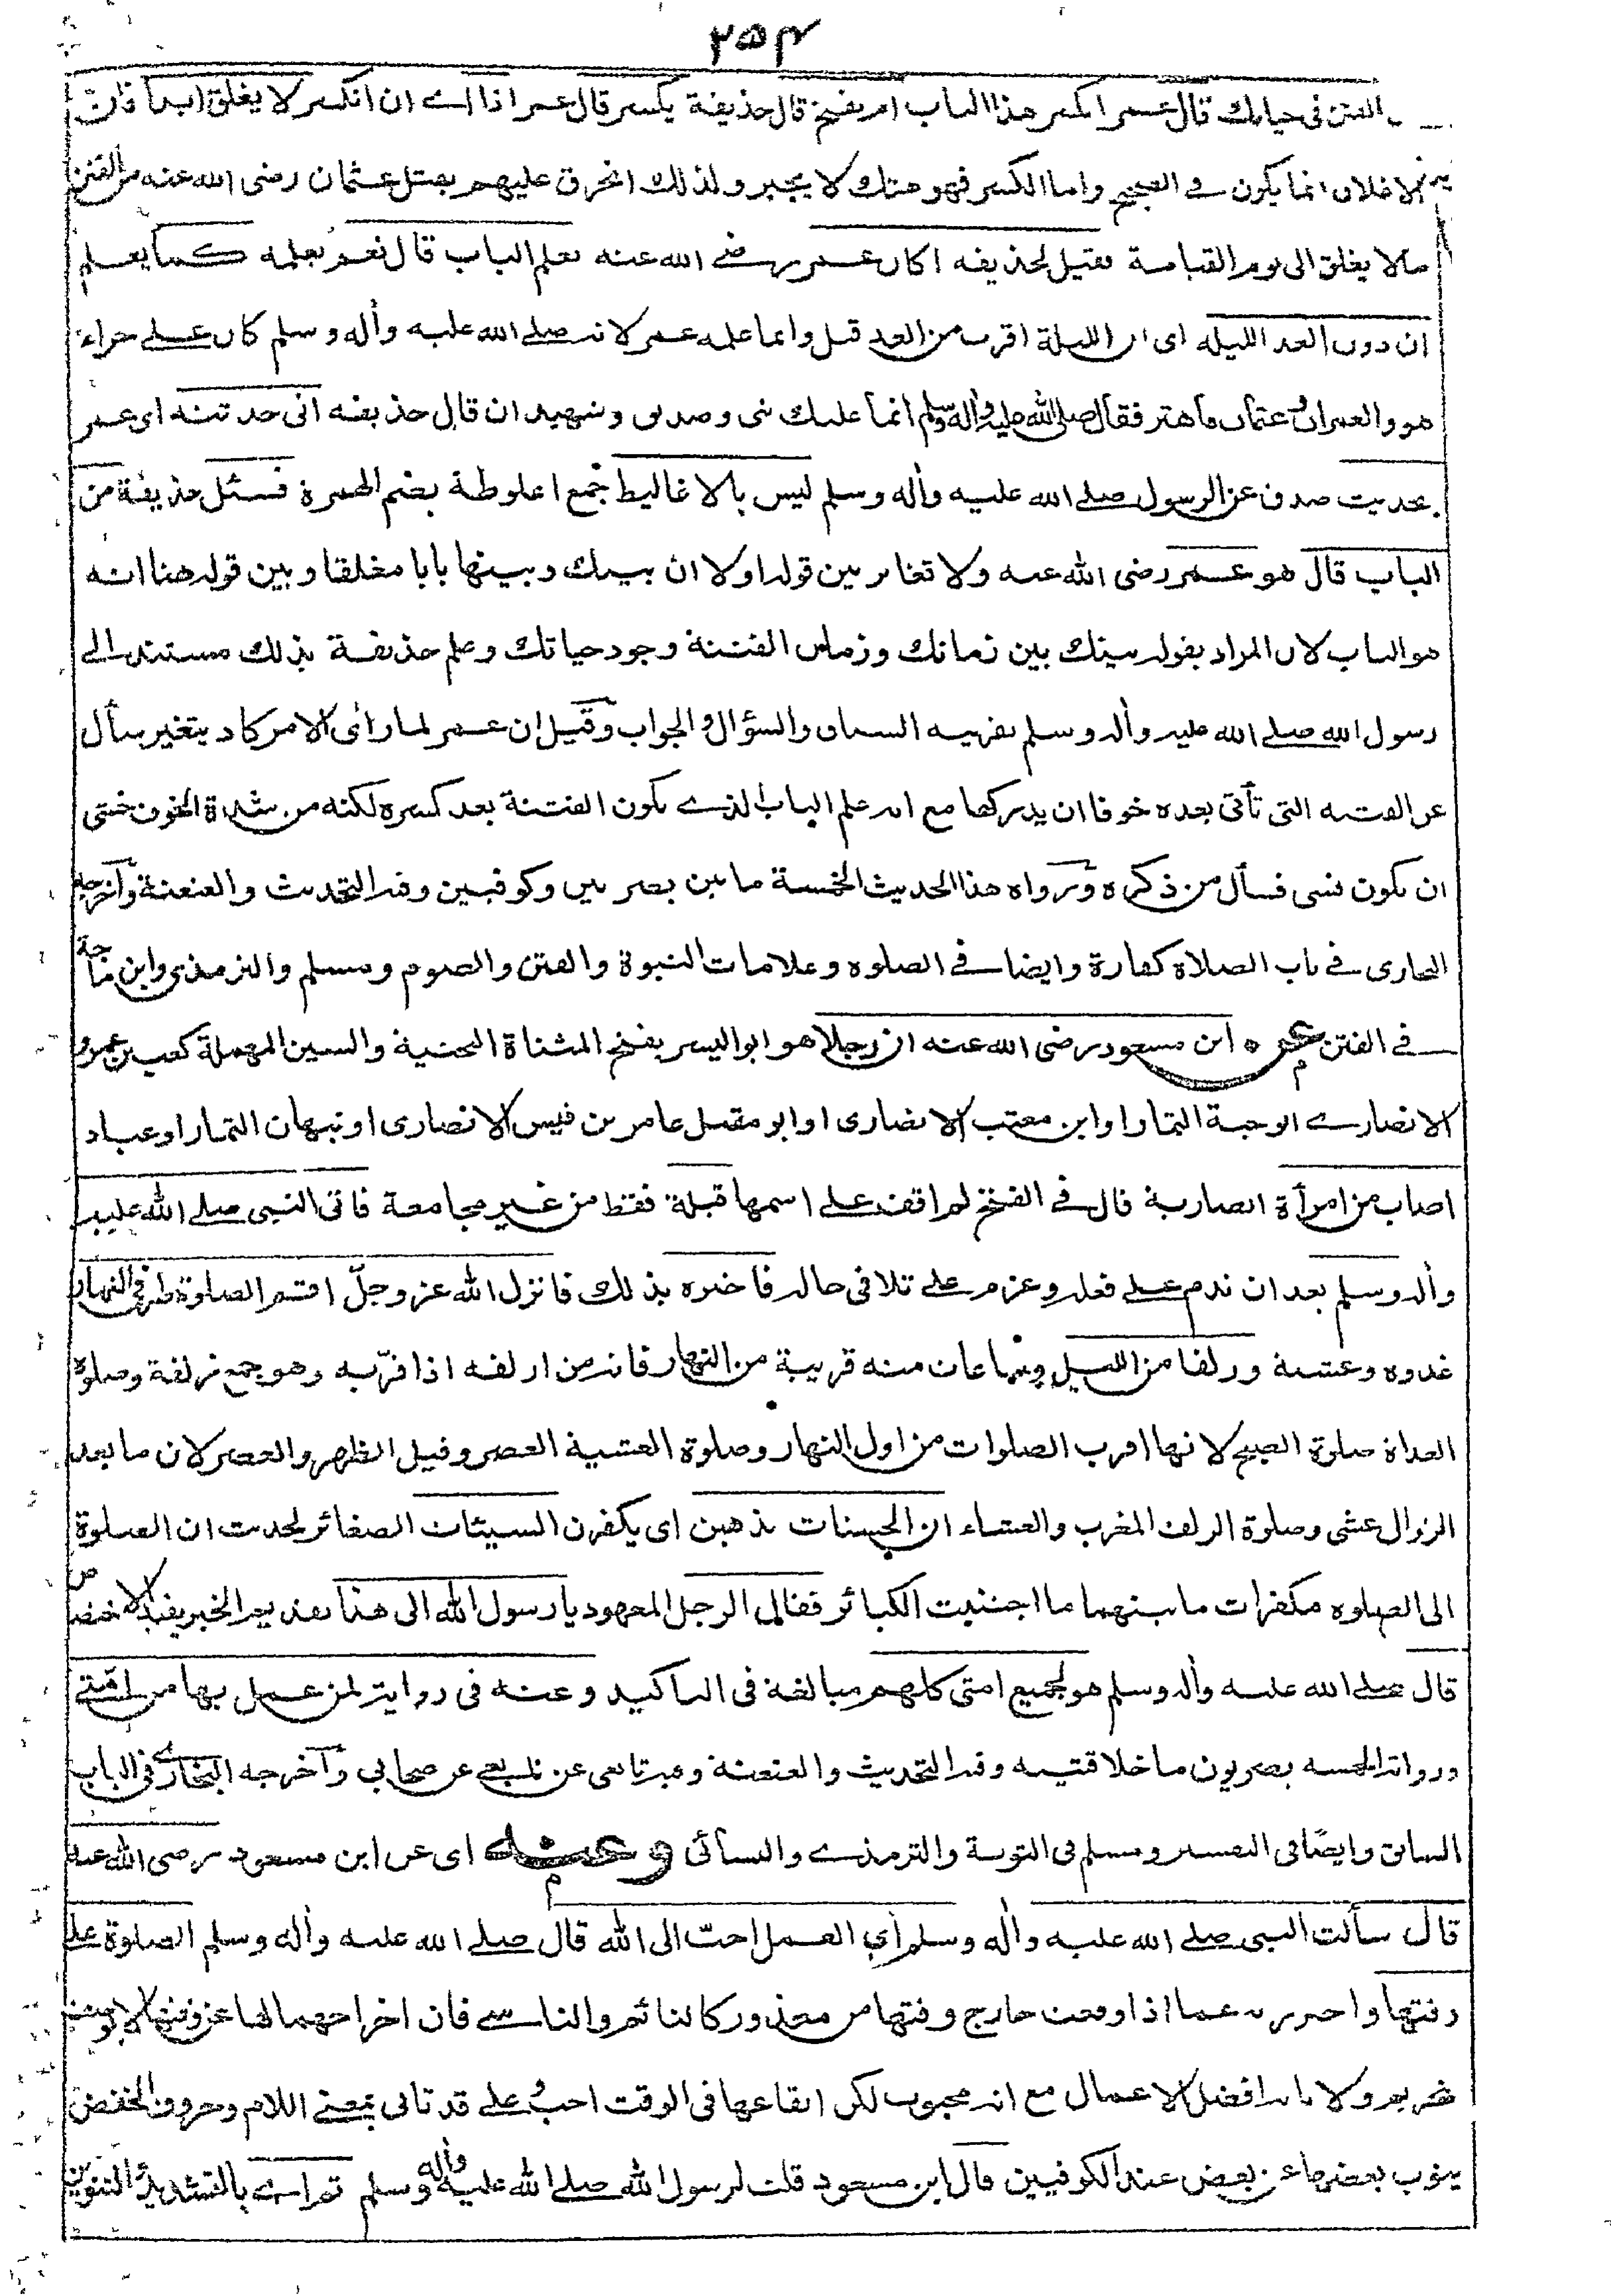 ٢٥٣
الفتن فى حياتك قال عمر ايكسر هذا الباب ام يفتح قال حذيفة يكسر قال عمر اذا اى ان انكسر لا يغلق ابدا فان
الاغلاق انما يكون فى الصحيح واما الكسر فهو هتك لا يجبر ولذلك انخرق عليهم بقتل عثمان رضى الله عنه من الفتن
مالا يغلق الى يوم القيامة فقيل لحذيفه اكان عمر رضى الله عنه يعلم الباب قال نعم يعلمه كما يعلم
ان دون الغد الليله اى ان الليلة اقرب من الغد قيل وانما علمه عمر لانه صلى الله عليه وأله وسلم كان على حراء
هو والعمران وعثمان فاهتز فقال صلى الله عليه وأله وسلم انما عليك نبى وصديق وشهيد ان قال حذيفه انى حدثته اى عمر
بحديث صدق عن الرسول صلى الله عليه وأله وسلم ليس بالاغاليط جمع اغلوطة بضم الهمزة فسئل حذيفة من
الباب قال هو عمر رضى الله عنه ولا تغاير بين قوله اولا ان بينك وبينها بابا مغلقا وبين قوله هنا انه
هو الباب لان المراد بقوله بينك بين زمانك وزمان الفتنة وجود حياتك وعلم حذيفة بذلك مستند الى
رسول الله صلى الله عليه وأله وسلم بقرينه السياق والسؤال والجواب وقيل ان عمر لما رأى الامر كاد يتغير سأل
عن الفتنه التى تأتى بعده خوفا ان يدركها مع انه علم الباب الذى تكون الفتنة بعد كسره لكنه من شدة الخوف خشى
ان يكون نسى فسأل من ذكره ورواه هذا الحديث الخمسة مابين بصريين وكوفيين وفيه التحديث والعنعنة وأخرجه
البخارى فى باب الصلاة كفارة وايضا فى الصلوه وعلامات النبوة والفتن والصوم ومسلم والترمذى وابن ماجة
فى الفتن عن ابن مسعود رضى الله عنه ان رجلا هو ابو اليسر بفتح المثناة التحتية والسين المهملة كعب بن عمرو
الانصارى ابو حبة التمار او ابن معتب الانصارى او ابو مقبل عامر بن قيس الانصارى او نبهان التمار او عباد
اصاب من امرأة انصارية قال فى الفتح لم اقف على اسمها قبلة فقط من غير مجامعة فاتى النبى صلى الله عليه
وأله وسلم بعد ان ندم على فعله وعزم على تلافى حاله فاخبره بذلك فانزل الله عز وجلّ اقم الصلوة طرفى النهار
غدوه وعشية وزلفا من الليل وساعات منه قريبة من النهار فانه من ازلفه اذا قرّبه وهو جمع زلفة وصلوة
الغداة صلوة الصبح لانها اقرب الصلوات من اول النهار وصلوة العشية العصر وقيل الظهر والعصر لان ما بعد
الزوال عشى وصلوة الزلف المغرب والعشاء ان الحسنات يذهبن اى يكفرن السيئات الصغائر لحديث ان الصلوة
الى الصلوه مكفرات ما بينهما ما اجتنبت الكبائر فقال الرجل المعهود يا رسول الله الى هذا بتقديم الخبر يفيد الاختصاص
قال صلى الله عليه وأله وسلم هو لجميع امتى كلهم مبالغة فى التاكيد وعنه فى رواية لمن عمل بها من امتى
ورواته الخمسه بصريون ماخلا قتيبه وفيه التحديث والعنعنة وفيه تابعى عن تابعى عن صحابي وأخرجه البخارى فى الباب
السابق وايضًا فى التفسير ومسلم فى التوبة والترمذى والنسائى وعنه اى عن ابن مسعود رضى الله عنه
قال سألت النبى صلى الله عليه وأله وسلم أي العمل احبّ الى الله قال صلى الله عليه وأله وسلم الصلوة على
وقتها واحترز به عما اذا وقعت خارج وقتها من معذور كالنائم والناسى فان اخراجهما لها عن وقتها لا يوصف
بتحريم ولا بانه افضل الاعمال مع انه محبوب لكن ايقاعها فى الوقت احبُّ وعلى قد تاتى بمعنى اللام وحروف الخفض
ينوب بعضها عن بعض عند الكوفيين قال ابن مسعود قلت لرسول الله صلى الله عليه وأله وسلم ثم اى بالتشديد والتنوين